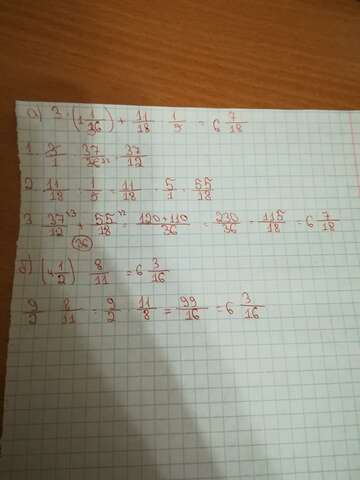 а) 3 · (1 1/36) + 11/18 : 1/5 = 6 7/18
1. 3/1 · 37/36 12 = 37/12
2. 11/18 : 1/5 = 11/18 · 5/1 = 55/18
3. 37/12 + 55/18 = 120+110/36 = 230/36 = 115/18 = 6 7/18
36
б) (4 1/2) : 8/11 = 6 3/16
9/2 : 8/11 = 9/2 · 11/8 = 99/16 = 6 3/16